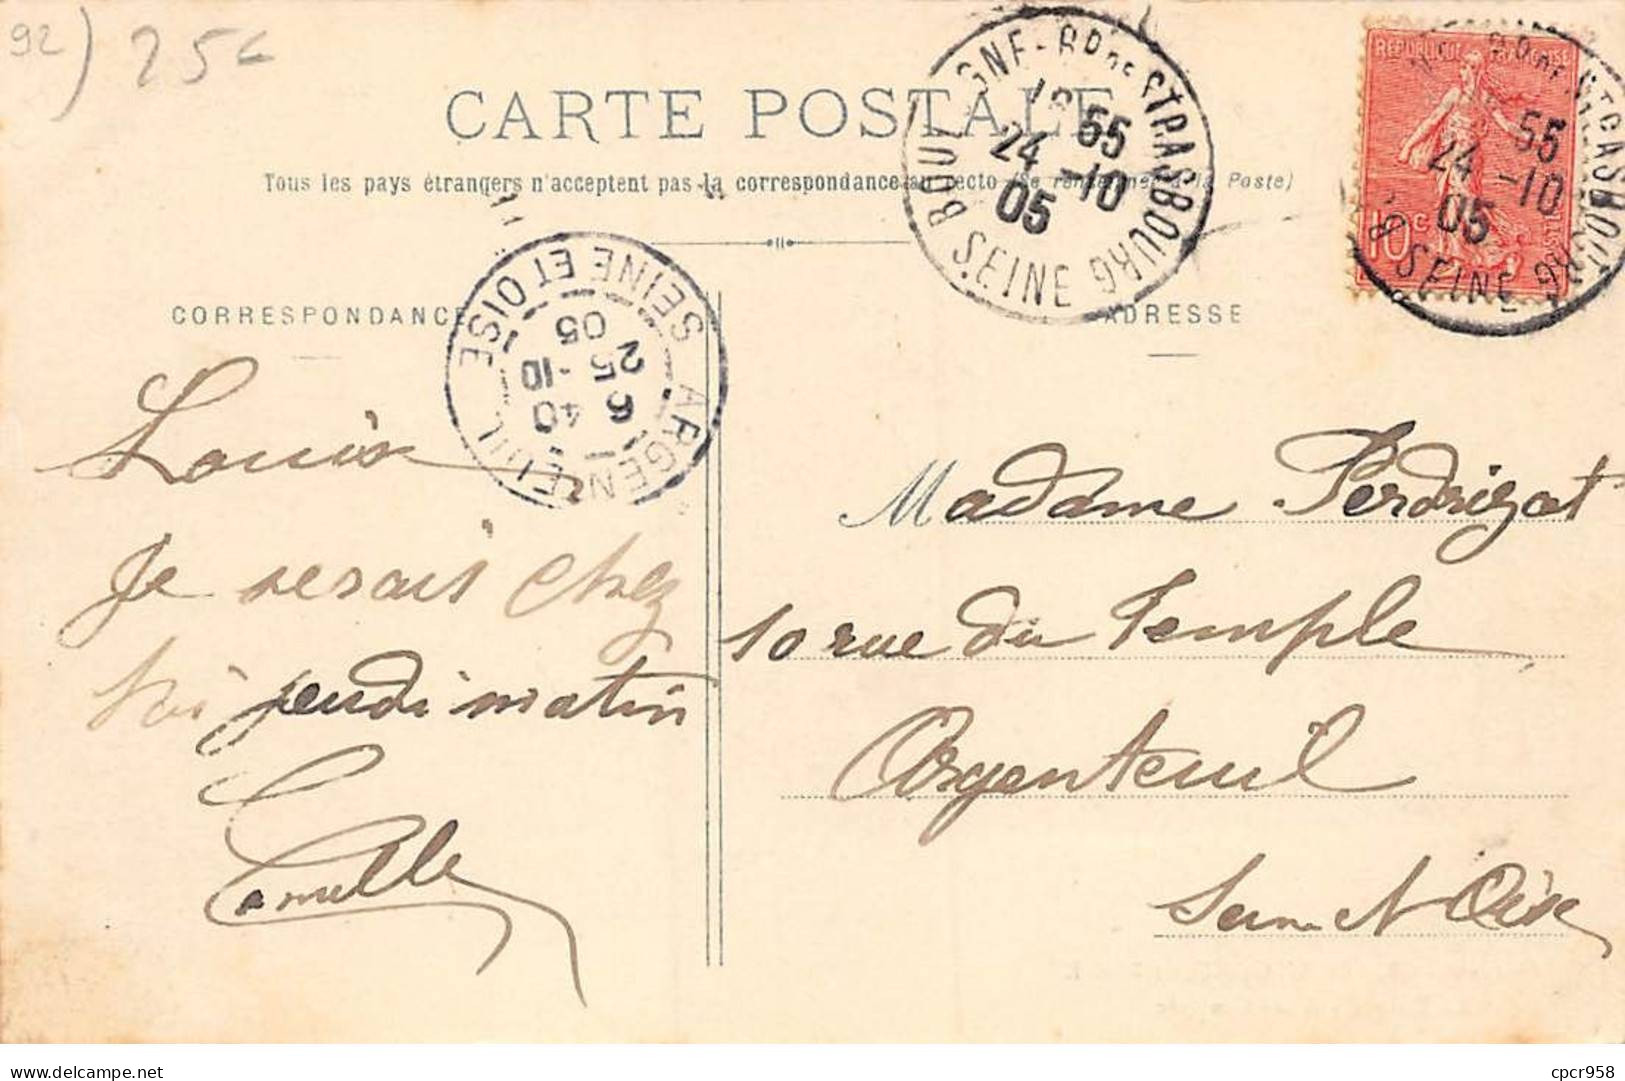 92) 25c
CARTE POSTALE
Tous les pays étrangers n'acceptent pas la correspondance au recto (Se renseigner à la Poste)
BOULOGNE - BD DE STRASBOURG
SEINE
18 55
24 -10
05
REPUBLIQUE FRANÇAISE
10c
POSTES
BD DE STRASBOURG
SEINE
55
24 -10
05
ARGENTEUIL
SEINE ET OISE
6 40
25 -10
05
CORRESPONDANCE
Louis
Je serais chez
toi jeudi matin
Camille
ADRESSE
Madame Perdrizat
10 rue du Temple
Argenteuil
Seine et Oise
cpcr958